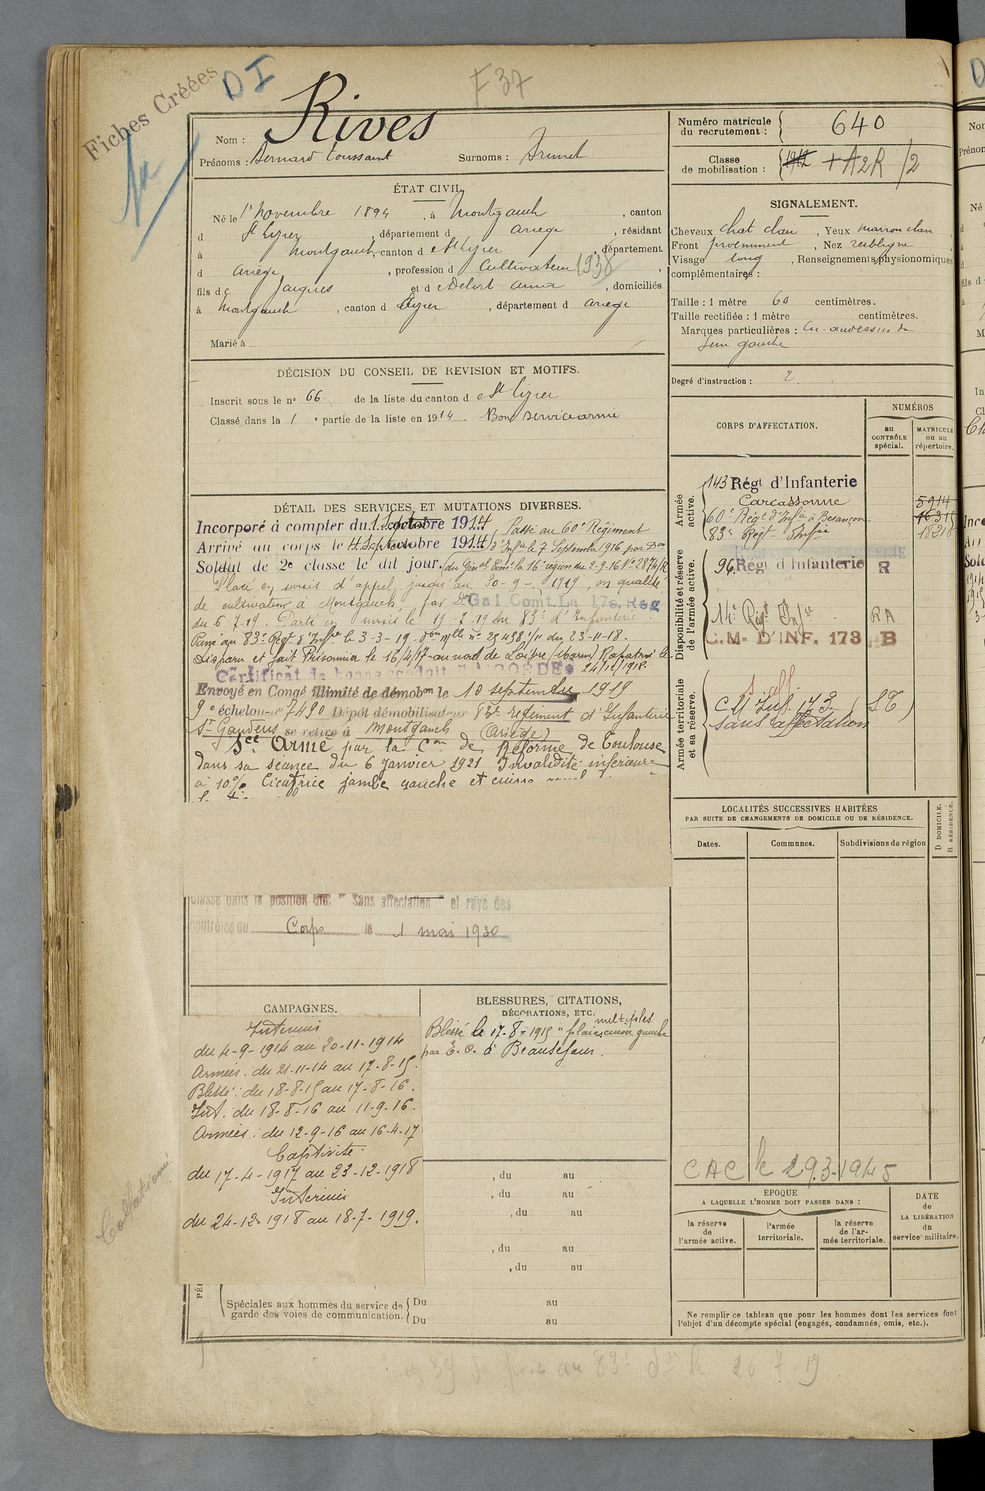 Fiches Créées
DI
F 37
Nom : Rives
Prénoms : Bernard Toussaint Surnoms : Brunet
Numéro matricule du recrutement : 640
Classe de mobilisation : 1912 + A2R /2
ÉTAT CIVIL.
Né le 1er novembre 1894, à Montgauch, canton
d St Lizier, département d Ariège, résidant
à Montgauch, canton d e St Lizier, département
d Ariège, profession d Cultivateur 1938,
fils de Jacques et d e Delort Anna, domiciliés
à Montgauch, canton d Lizier, département d Ariège
Marié à
SIGNALEMENT.
Cheveux chat clair, Yeux marron clair
Front proeminent, Nez rectiligne
Visage long, Renseignements physionomiques
complémentaires :
Taille : 1 mètre 60 centimètres.
Taille rectifiée : 1 mètre centimètres.
Marques particulières : Cic. au-dessus du
gauche
Degré d'instruction : 2
DÉCISION DU CONSEIL DE REVISION ET MOTIFS.
Inscrit sous le n° 66 de la liste du canton d e St Lizier
Classé dans la 1 e partie de la liste en 1914. Bon service armé
CORPS D'AFFECTATION.
NUMÉROS
au CONTRÔLE spécial.
MATRICULE ou au répertoire.
Armée active.
143 Régt d'Infanterie
Carcassonne
5914
60e Régt d'Infie à Besançon
83e Régt Infie
18218
Disponibilité et réserve de l'armée active.
96 Régt d'Infanterie R
14e Régt Infie RA
C.M. D'INF. 173 B
Armée territoriale et sa réserve.
C M Inf 173 (ST)
Sans affectation
DÉTAIL DES SERVICES ET MUTATIONS DIVERSES.
Incorporé à compter du 1 octobre 1914
Arrivé au corps le 4 Septembre octobre 1914
Soldat de 2e classe le dit jour.
Passé au 60e Régiment
d'Infie le 7 Septembre 1916 par Don
du Génal Comt la 16e région du 2-9-16 No 2874/R
Placé en sursis d'appel jusqu'au 30-9-1919, en qualité
de cultivateur à Montgauch, par Dn Gal Comt La 17e Reg
du 6-7-19. Parti en sursis le 19-7-19 du 83e d'Infanterie.
Passé au 83e Régt d'Inft le 3-3-19. Don Mlle no 29498/11 du 23-11-18.
Disparu et fait Prisonnier le 16/4/17 au nord de Loivre (Marne) Rapatrié le
24/12/1918.
Certificat de bonne conduite ACCORDÉ
Envoyé en Congé illimité de démobon le 10 septembre 1919
9e échelon no 7490 Dépôt démobilisateur 83e régiment d'Infanterie
St Gaudens se retire à Montgauch (Ariège)
Sce Armé par la Con de Réforme de Toulouse
dans sa séance du 6 Janvier 1921 Invalidité inférieure
à 10% Cicatrice jambe gauche et cuisse
Classé dans la position dite "Sans affectation" et rayé des
contrôles du Corps le 1 mai 1930
LOCALITÉS SUCCESSIVES HABITÉES
PAR SUITE DE CHANGEMENTS DE DOMICILE OU DE RÉSIDENCE.
Dates.
Communes.
Subdivisions de région
D DOMICILE.
R RÉSIDENCE.
CAC le 29.3.1945
CAMPAGNES.
Intérieur
du 4-9-1914 au 20-11-1914
Armées : du 21-11-14 au 17-8-15.
Blessé : du 18-8-15 au 17-8-16.
Int. du 18-8-16 au 11-9-16.
Armées : du 12-9-16 au 16-4-17
Captivité
du 17-4-1917 au 23-12-1918
Intérieur
du 24-12-1918 au 18-7-1919.
BLESSURES, CITATIONS,
DÉCORATIONS, ETC.
Blessé le 17-8-1915 "plaies multiples cuisse gauche
par E. O. à Beauséjour.
, du au
, du au
, du au
, du au
, du au
Spéciales aux hommes du service de garde des voies de communication. Du au
Du au
EPOQUE
A LAQUELLE L'HOMME DOIT PASSER DANS :
la réserve de l'armée active.
l'armée territoriale.
la réserve de l'armée territoriale.
DATE de LA LIBÉRATION du service militaire.
Ne remplir ce tableau que pour les hommes dont les services font
l'objet d'un décompte spécial (engagés, condamnés, omis, etc.).
Collationné
au 83e dle 20 7-19